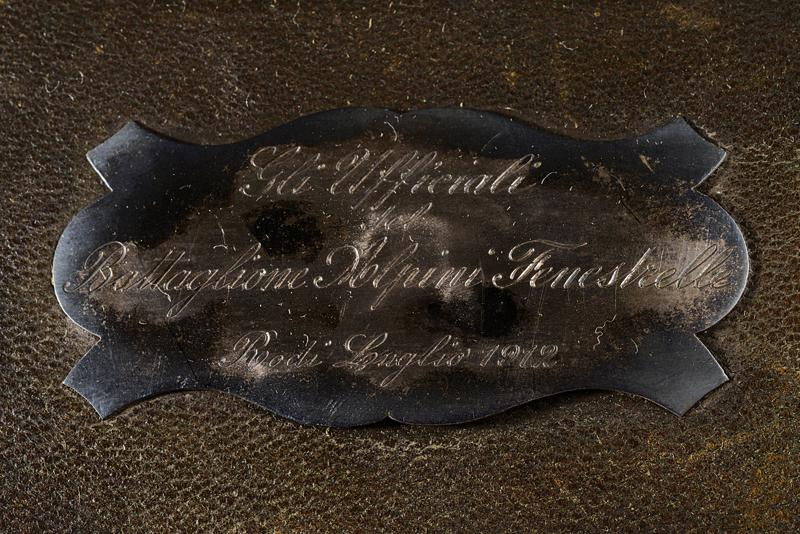 Gli Ufficiali
del
Battaglione Alpini Fenestrelle
Rodi Luglio 1912